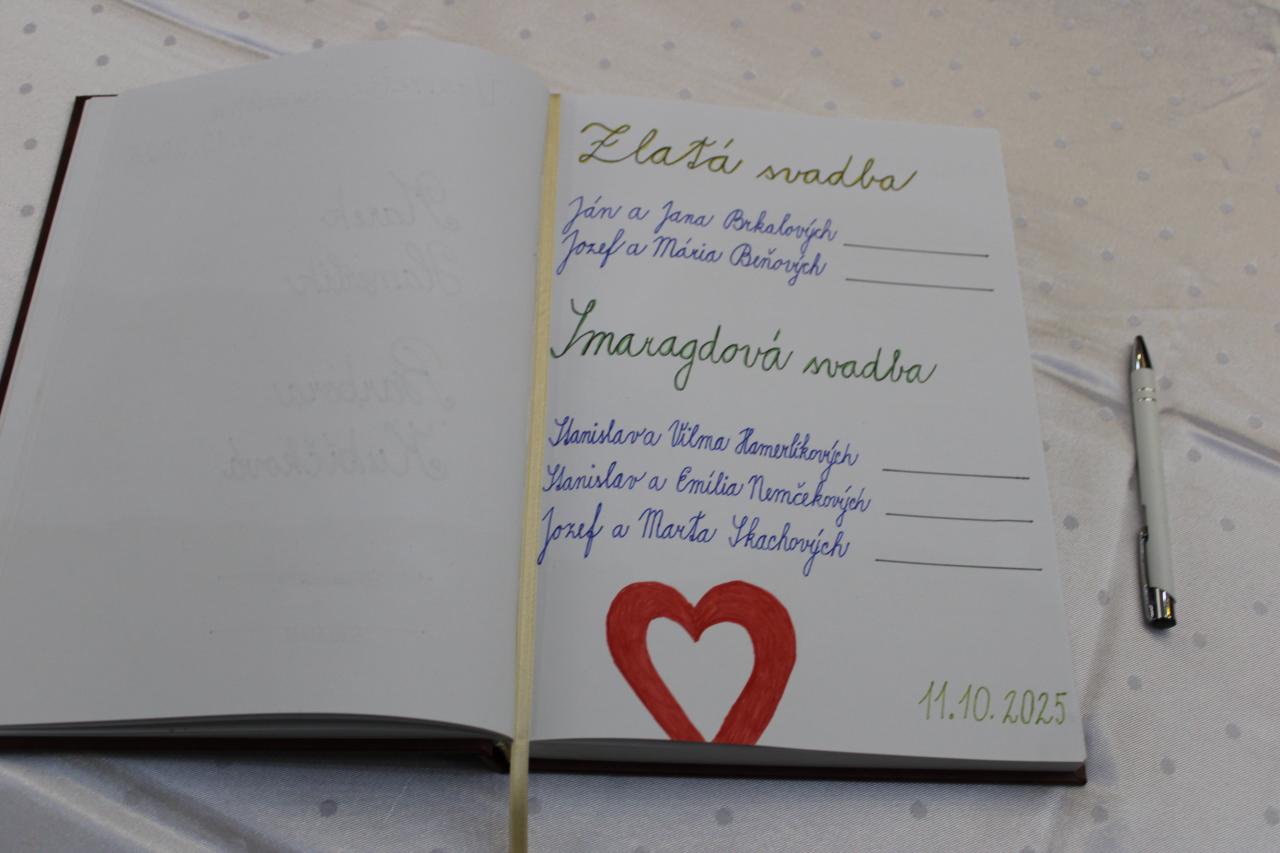 Zlatá svadba
Ján a Jana Brkalových
Jozef a Mária Beňových
Smaragdová svadba
Stanislav a Vilma Hamerlíkových
Stanislav a Emília Nemčekových
Jozef a Marta Skachových
11.10.2025